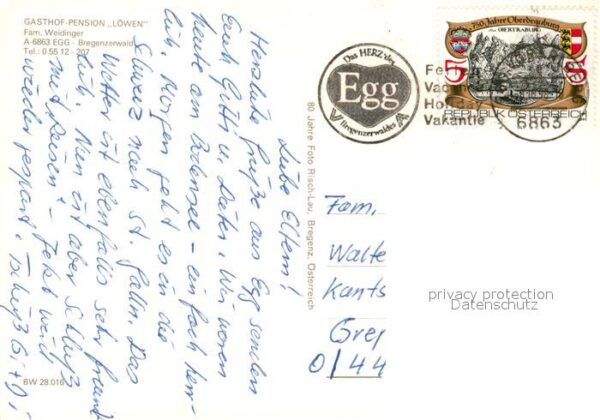 GASTHOF-PENSION „LÖWEN"
Fam. Weidinger
A-6863 EGG - Bregenzerwald
Tel.: 0 55 12 - 207
Liebe Eltern!
Herzliche Grüße aus Egg senden
Euch Gitti u. Dieter. Wir waren
heute am Bodensee - einfach herr-
lich. Morgen geht es in die
Schweiz nach St. Gallen. Das
Wetter ist ebenfalls sehr freund-
lich. Nun ist aber Schluß
mit Reisen - Jetzt wird
wieder gespart. Tschüß Gi+D.
BW 28.016
80 Jahre Foto Risch-Lau, Bregenz, Österreich
Das HERZ des
Egg
Bregenzerwaldes
Vakantie
6863
750 Jahre Oberdrauburg
REPUBLIK ÖSTERREICH
S5
Fam.
Walte
Kants
Grep
0/44
privacy protection
Datenschutz